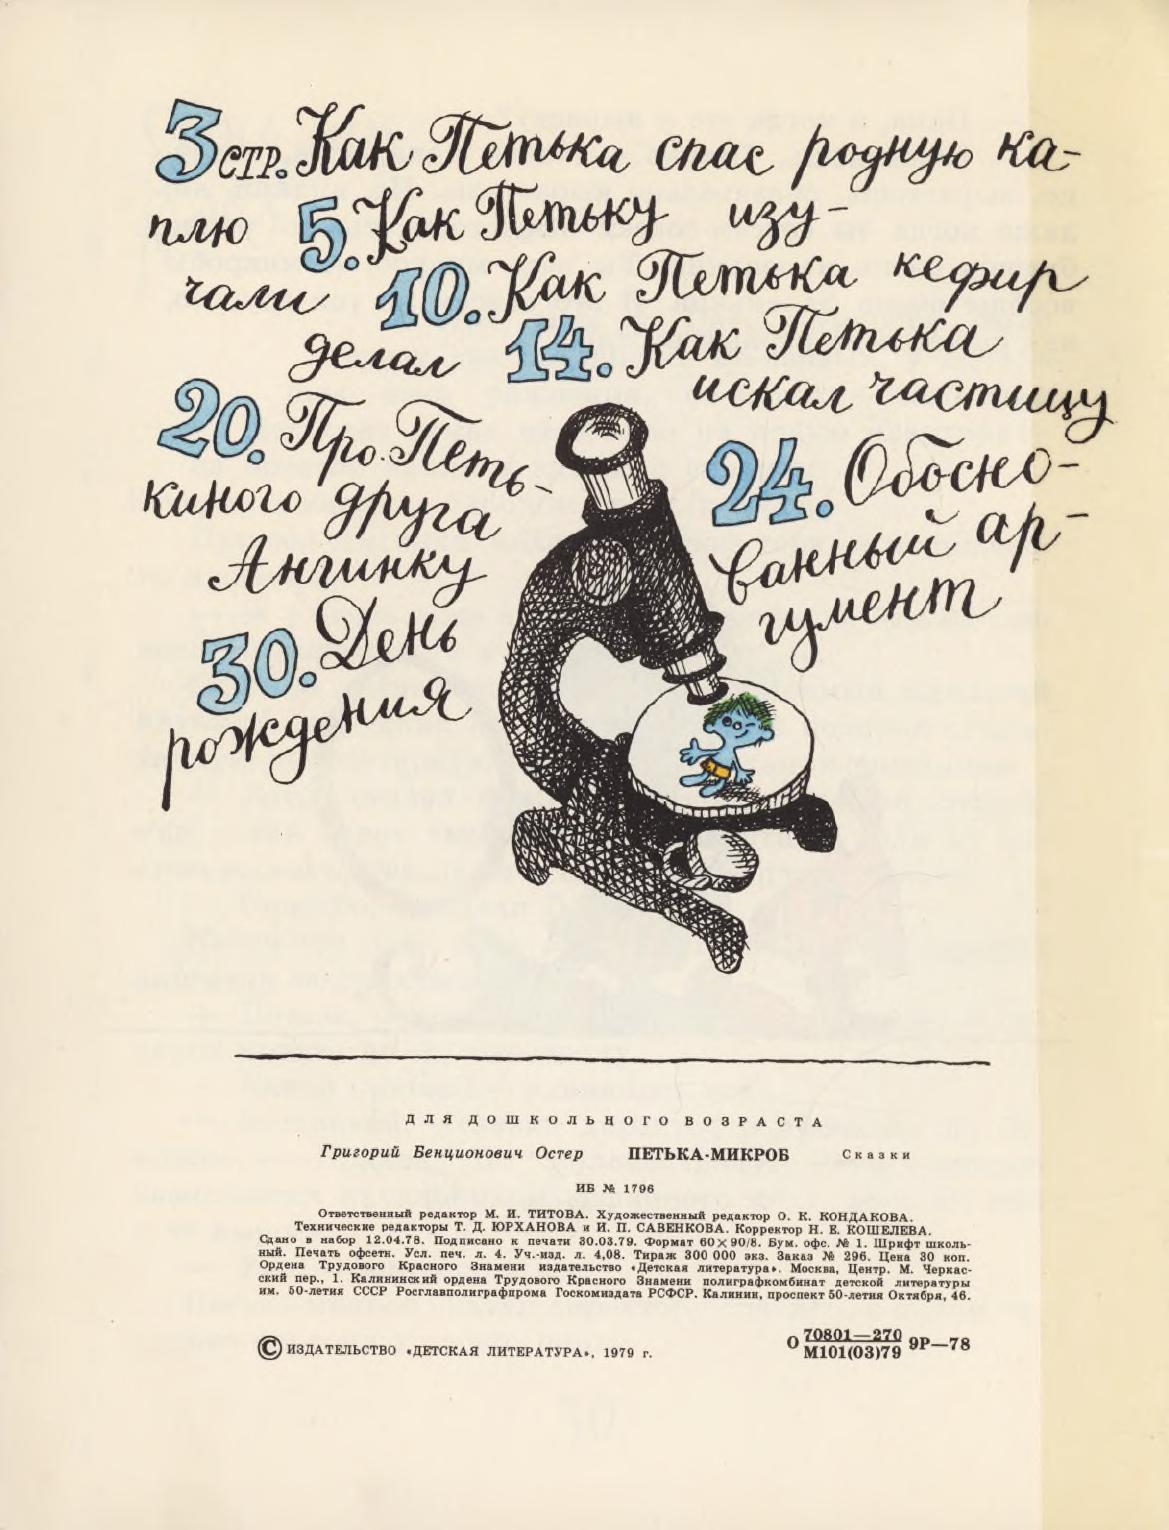 3 стр. Как Петька спас родную ка-
плю 5. Как Петьку изу-
чали 10. Как Петька кефир
делал 14. Как Петька
искал частицу
20. Про Петь-
киного друга
Ангинку
24. Обосно-
ванный ар-
гумент
30. День
рождения
ДЛЯ ДОШКОЛЬНОГО ВОЗРАСТА
Григорий Бенционович Остер ПЕТЬКА-МИКРОБ Сказки
ИБ № 1796
Ответственный редактор М. И. ТИТОВА. Художественный редактор О. К. КОНДАКОВА.
Технические редакторы Т. Д. ЮРХАНОВА и И. П. САВЕНКОВА. Корректор Н. Е. КОШЕЛЕВА.
Сдано в набор 12.04.78. Подписано к печати 30.03.79. Формат 60×90/8. Бум. офс. № 1. Шрифт школь-
ный. Печать офсетн. Усл. печ. л. 4. Уч.-изд. л. 4,08. Тираж 300 000 экз. Заказ № 296. Цена 30 коп.
Ордена Трудового Красного Знамени издательство «Детская литература». Москва, Центр. М. Черкас-
ский пер., 1. Калининский ордена Трудового Красного Знамени полиграфкомбинат детской литературы
им. 50-летия СССР Росглавполиграфпрома Госкомиздата РСФСР. Калинин, проспект 50-летия Октября, 46.
© ИЗДАТЕЛЬСТВО «ДЕТСКАЯ ЛИТЕРАТУРА», 1979 г.
О 70801—270 9Р—78
М101(03)79